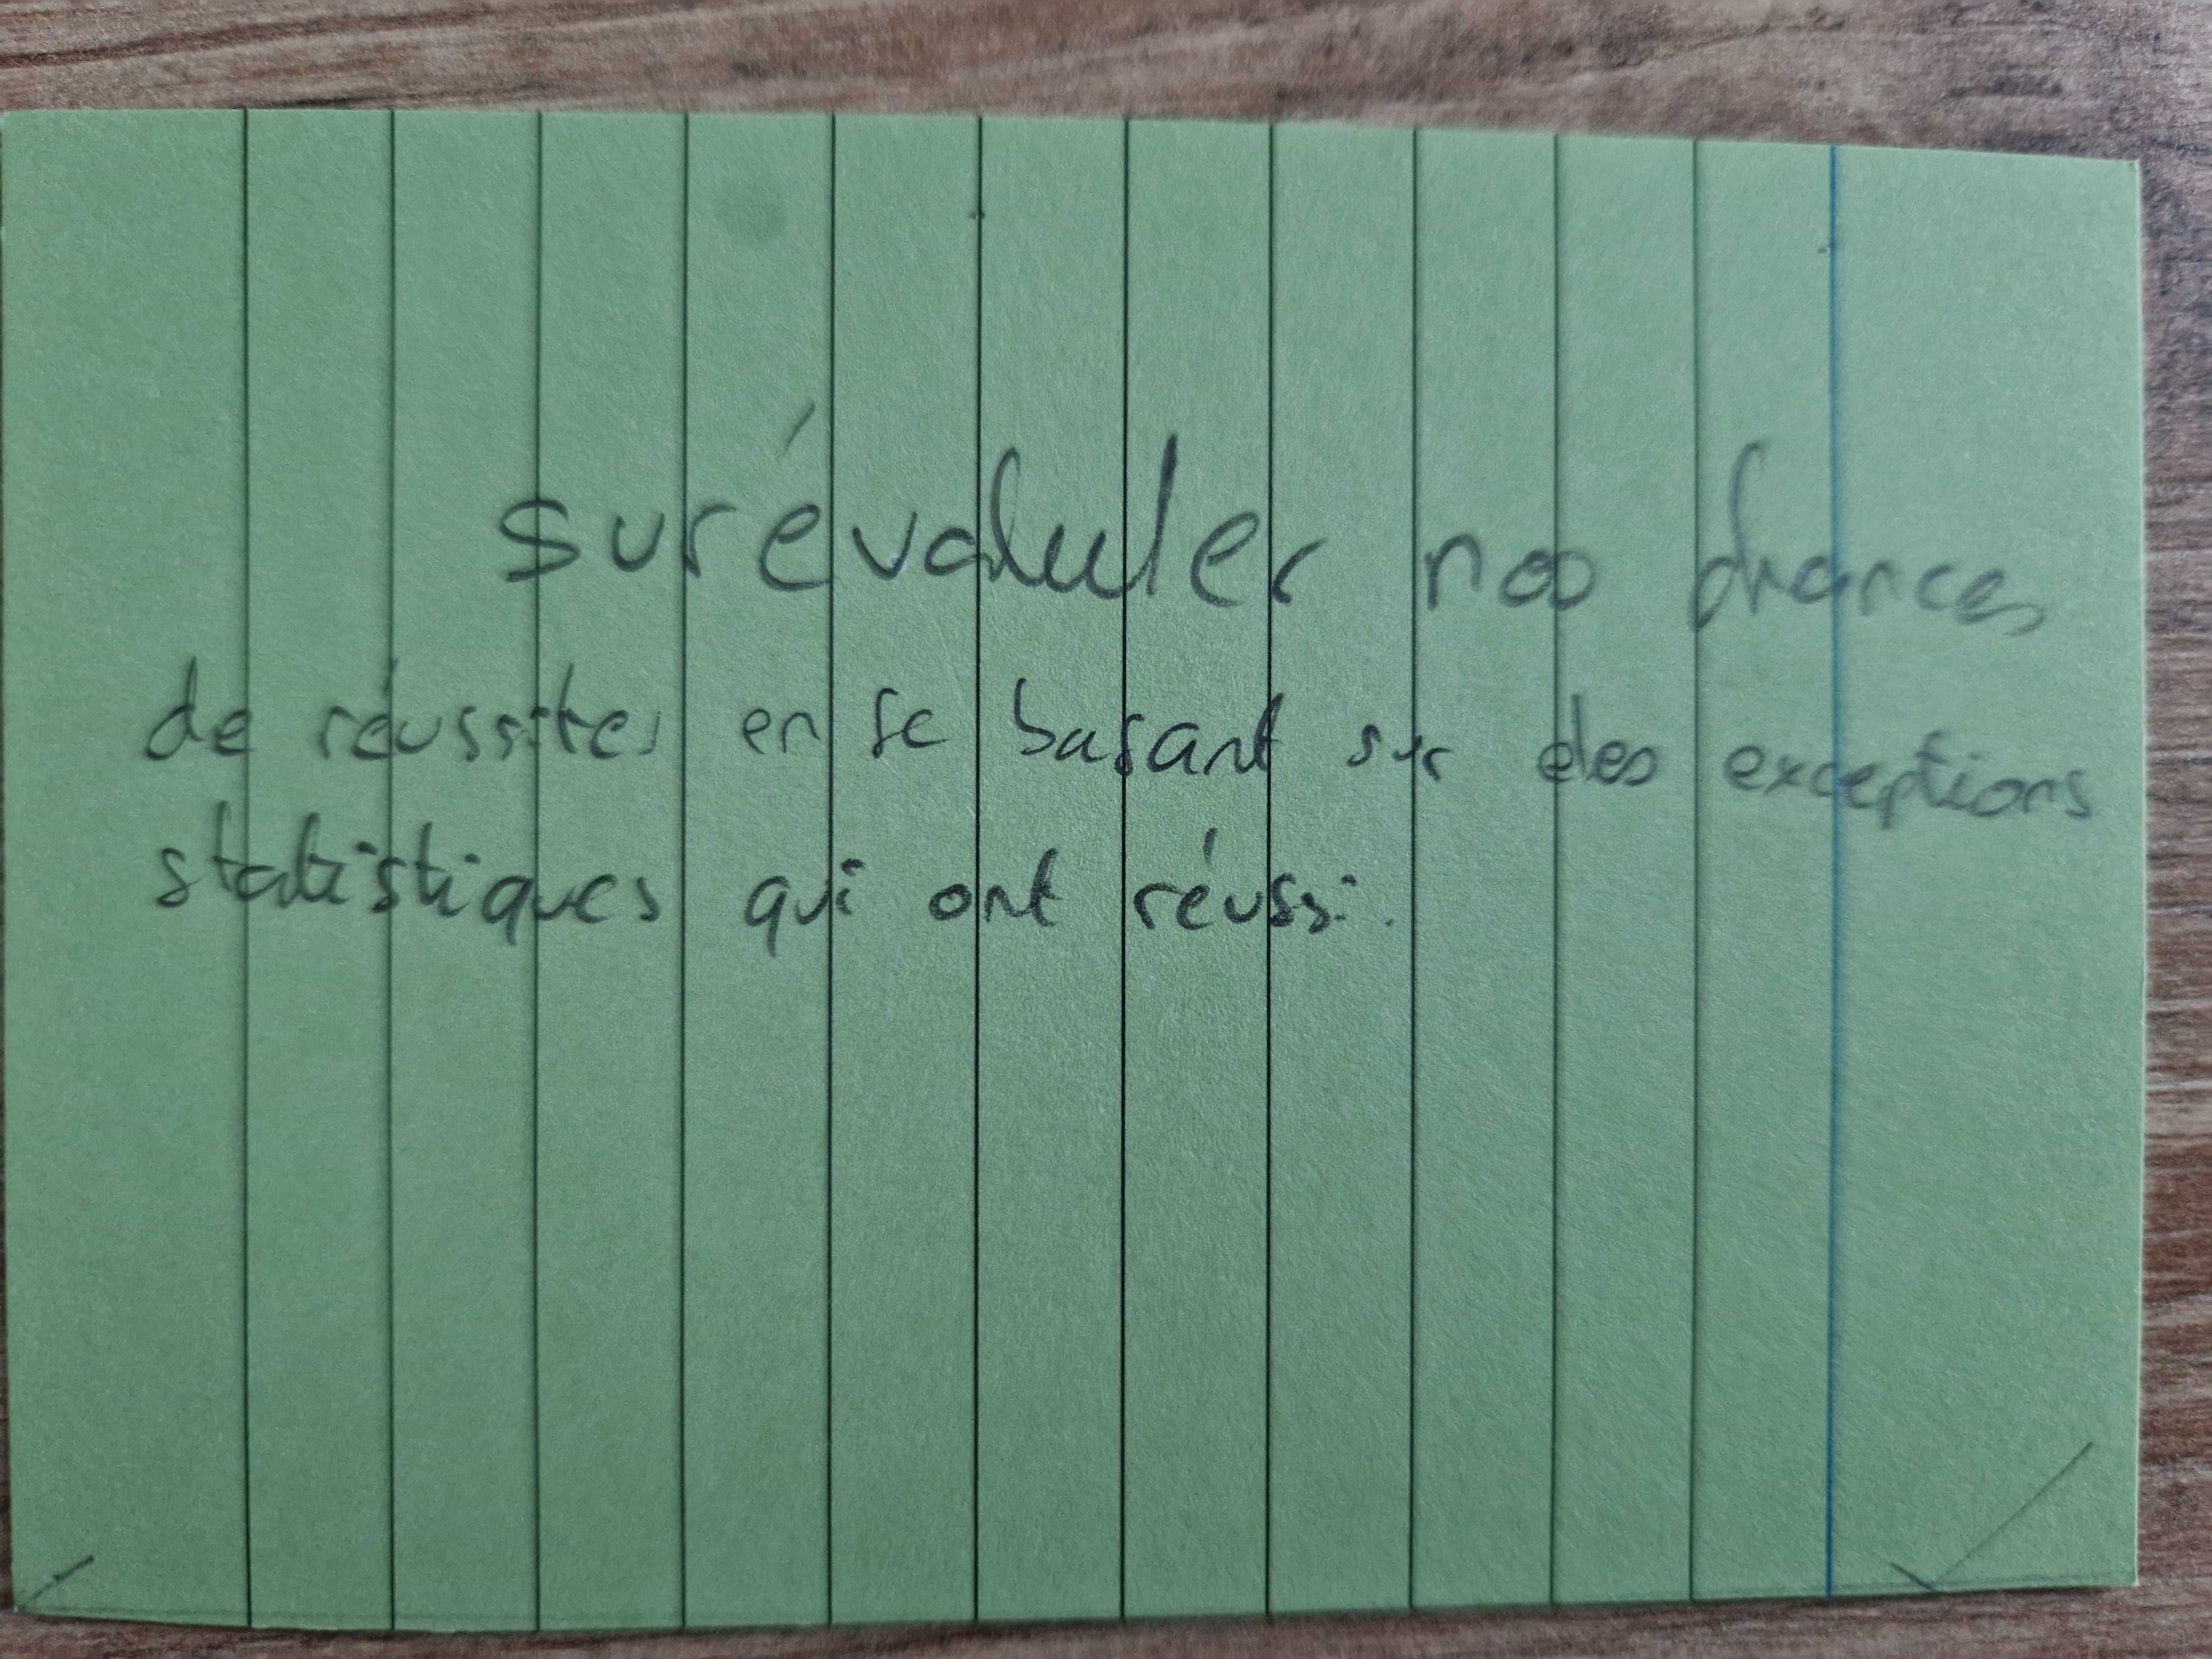 surévaluler nos chances
de réussites en se basant sur des exceptions
statistiques qui ont réussi.